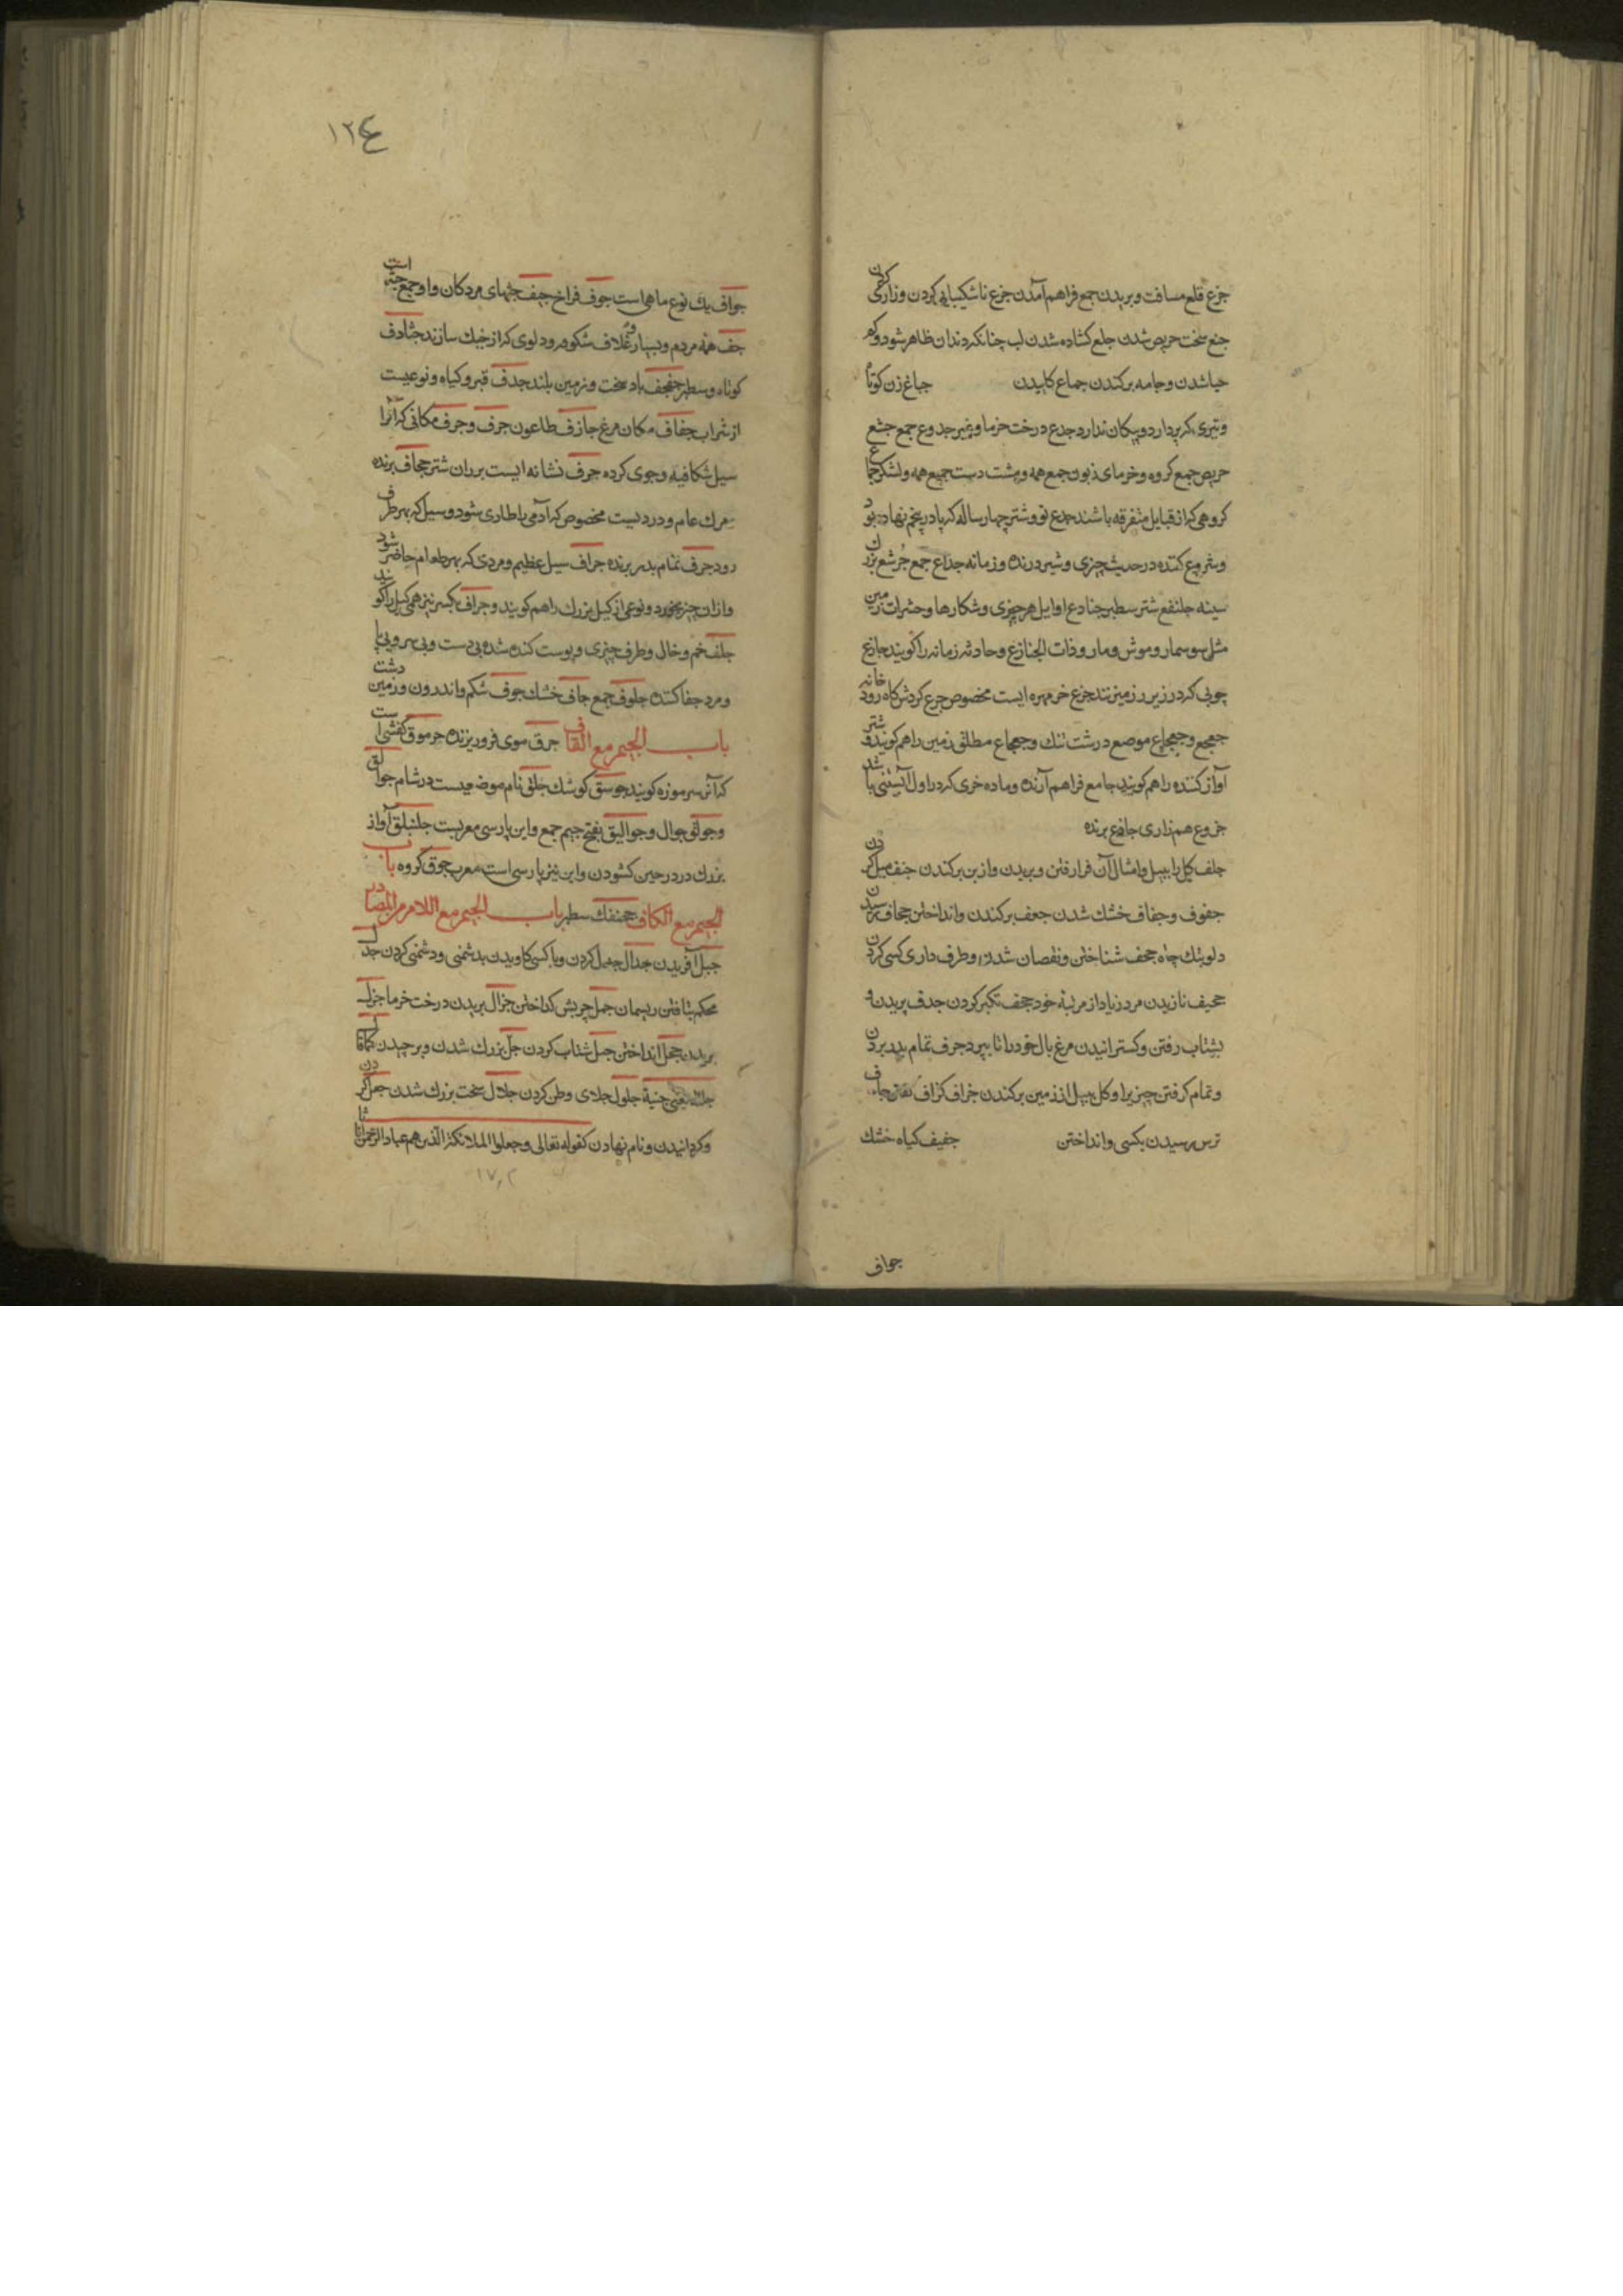 جزع قلع مسافت و بریدن جمع فراهم آمدن جزع ناشکیبایی کردن و زاری کردن
جشع سخت حریص شدن جلع کشاده شدن لب چنانکه دندان ظاهر شود و کم
حیا شدن و جامه برکندن جماع کاییدن جباع زن کوتاه
و تیری که پر دارد و پیکان ندارد جذع درخت خرما و غیر جذوع جمع جشع
حریص جمع کروه و خرمای زبون جمع همه و مشت دست جمیع همه و لشکر جماع
کروهی که از قبایل متفرقه باشند جذع نو و شتر چهار ساله که پا در پنجم نهاده بود
و شروع کننده در حدیث چیزی و شیر درنده و زمانه جذاع جمع جرشع بزرگ
سینه جلنفع شتر سطبر جنادع اوایل هر چیزی و شکارها و حشرات زمین
مثل سوسمار و موش و مار و ذات الجنادع و حادثه زمانه را کویند جازع
چوبی که در زیر رز زمین نهند جزع خرمهره ایست مخصوص جزع کردش کاه رود خانه
جعجع و جعجاع موضع درشت تنک و جعجاع مطلق زمین را هم کویند و شتر
آواز کننده را هم کویند جامع فراهم آرنده و ماده خری که در اول آبستنی باشد
جزوع هم زاری جازع برنده
جلف کل را ببیل و امثال آن فرا رفتن و بریدن و از بن برکندن جنف میل کردن
جفوف و جفاف خشک شدن جعف برکندن و انداختن جحاف رسیدن
دلو بتک چاه جحف شناختن و نقصان شدن و طرف داری کسی کردن
جخیف نازیدن مرد زیاد از مرتبه خود جخف تکبر کردن جدف پریدن و
بشتاب رفتن و کسترانیدن مرغ بال خود را تا بپرد جرف تمام بدر بردن
و تمام کرفتن چیزی را و کل ببیل از زمین برکندن جزاف کزاف
ترس رسیدن بکسی و انداختن جفیف کیاه خشک
جواف
١٢٤
جواف یک نوع ماهی است جوف فراخ جیف جثهای مردکان و او جمع جیفه است
جف همه مردم و بسیار و غلاف شکوفه و دلوی که از خیک سازند جنادف
کوتاه و سطبر جفجف باد سخت و زمین بلند جدف قبر و کیاه و نوعیست
از شراب جفاف مکان مرغ جازف طاعون جرف و جرف مکانی که آنرا
سیل شکافیده و جوی کرده جرف نشانه ایست بر ران شتر جحاف برنده
مرک عام و دردیست مخصوص که آدمی را طاری شود و سیل که بهر طرف
رود جرف تمام بدر برنده جراف سیل عظیم و مردی که بهر طعام حاضر شود
و از ان چیز بخورد و نوعی از کیل بزرک را هم کویند و جراف بکسر نیز همی کیل را کویند
جلف خم و خالی و طرف چیزی و پوست کنده شده بی دست و بی سر و بی پا
و مرد جفا کننده جلوف جمع جاف خشک جوف شکم و اندرون و زمین دشت
باب الجیم مع القاف جرق موی فرو ریزنده جرموق کفشی است
که آنرا سرموزه کویند جوسق کوشک جلق نام موضعیست در شام جوالق
و جوالق جوال و جوالیق بفتح جیم جمع و این پارسی معربست جلنبلق آواز
بزرک در در حین کشودن و این نیز پارسی است معرب جوق کروه باب
الجیم مع الکاف جحنفک سطبر باب الجیم مع اللام من المصادر
جبل آفریدن جدال جدل کردن و با کسی کاویدن بدشمنی و دشمنی کردن جدل
محکم بتافتن ریسمان جمل چربش کداختن جزال بریدن درخت خرما جزل
بریدن جعل انداختن جبل شتاب کردن جل بزرک شدن و برچیدن
جلوله جلول جلای وطن کردن جلال سخت بزرک شدن جعل کردن
و کردانیدن و نام نهادن کقوله تعالی و جعلوا الملائکة الذین هم عباد الرحمن اناثا